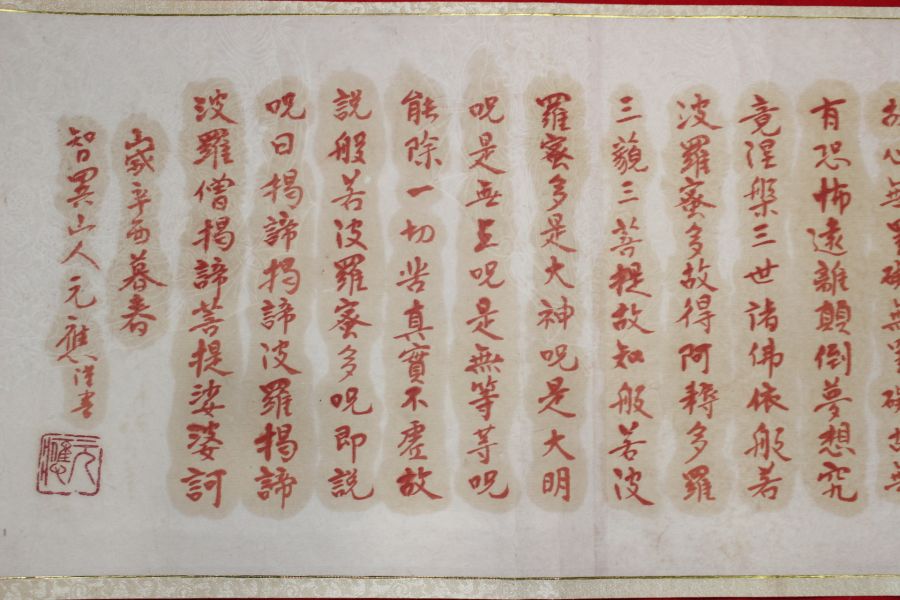 故心無罣礙無罣礙故無
有恐怖遠離顛倒夢想究
竟涅槃三世諸佛依般若
波羅蜜多故得阿耨多羅
三藐三菩提故知般若波
羅蜜多是大神呪是大明
呪是無上呪是無等等呪
能除一切苦真實不虛故
說般若波羅蜜多呪即説
呪曰揭諦揭諦波羅揭諦
波羅僧揭諦菩提娑婆訶
歲辛暮春
智異山人元應書
元應